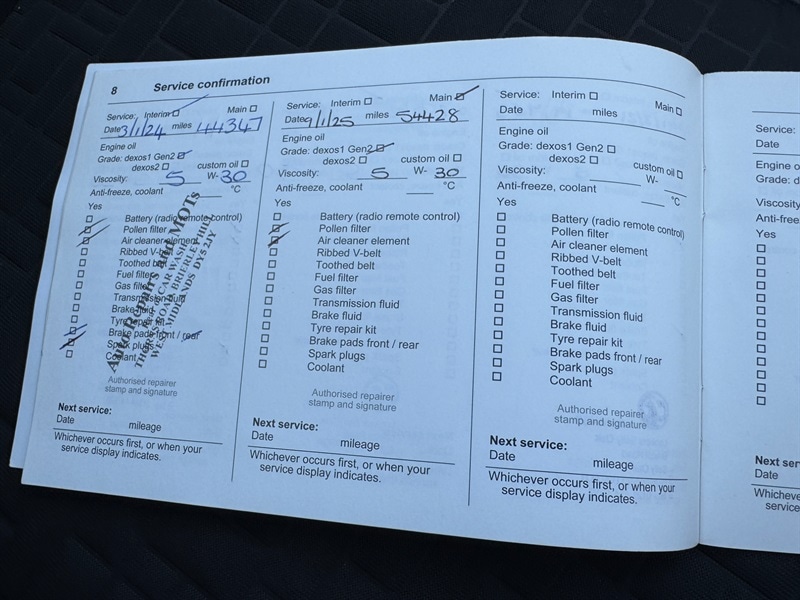 8 Service confirmation
Service: Interim Main
Date 3/1/24 miles 44347
Engine oil
Grade: dexos1 Gen2
dexos2 custom oil
Viscosity: 5 W- 30
Anti-freeze, coolant °C
Yes
Battery (radio remote control)
Pollen filter
Air cleaner element
Ribbed V-belt
Toothed belt
Fuel filter
Gas filter
Transmission fluid
Brake fluid
Tyre repair kit
Brake pads front / rear
Spark plugs
Coolant
Auto Repairs and MOTs
CAR WASH
BRIERLEY HILL
WEST MIDLANDS DY5 2JY
Authorised repairer
stamp and signature
Next service:
Date mileage
Whichever occurs first, or when your
service display indicates.
Service: Interim Main
Date 9/1/25 miles 54428
Engine oil
Grade: dexos1 Gen2
dexos2 custom oil
Viscosity: 5 W- 30
Anti-freeze, coolant °C
Yes
Battery (radio remote control)
Pollen filter
Air cleaner element
Ribbed V-belt
Toothed belt
Fuel filter
Gas filter
Transmission fluid
Brake fluid
Tyre repair kit
Brake pads front / rear
Spark plugs
Coolant
Authorised repairer
stamp and signature
Next service:
Date mileage
Whichever occurs first, or when your
service display indicates.
Service: Interim Main
Date miles
Engine oil
Grade: dexos1 Gen2
dexos2 custom oil
Viscosity: W-
Anti-freeze, coolant °C
Yes
Battery (radio remote control)
Pollen filter
Air cleaner element
Ribbed V-belt
Toothed belt
Fuel filter
Gas filter
Transmission fluid
Brake fluid
Tyre repair kit
Brake pads front / rear
Spark plugs
Coolant
Authorised repairer
stamp and signature
Next service:
Date mileage
Whichever occurs first, or when your
service display indicates.
Service:
Date
Engine o
Grade: d
Viscosity
Anti-free
Yes
Next ser
Date
Whicheve
service